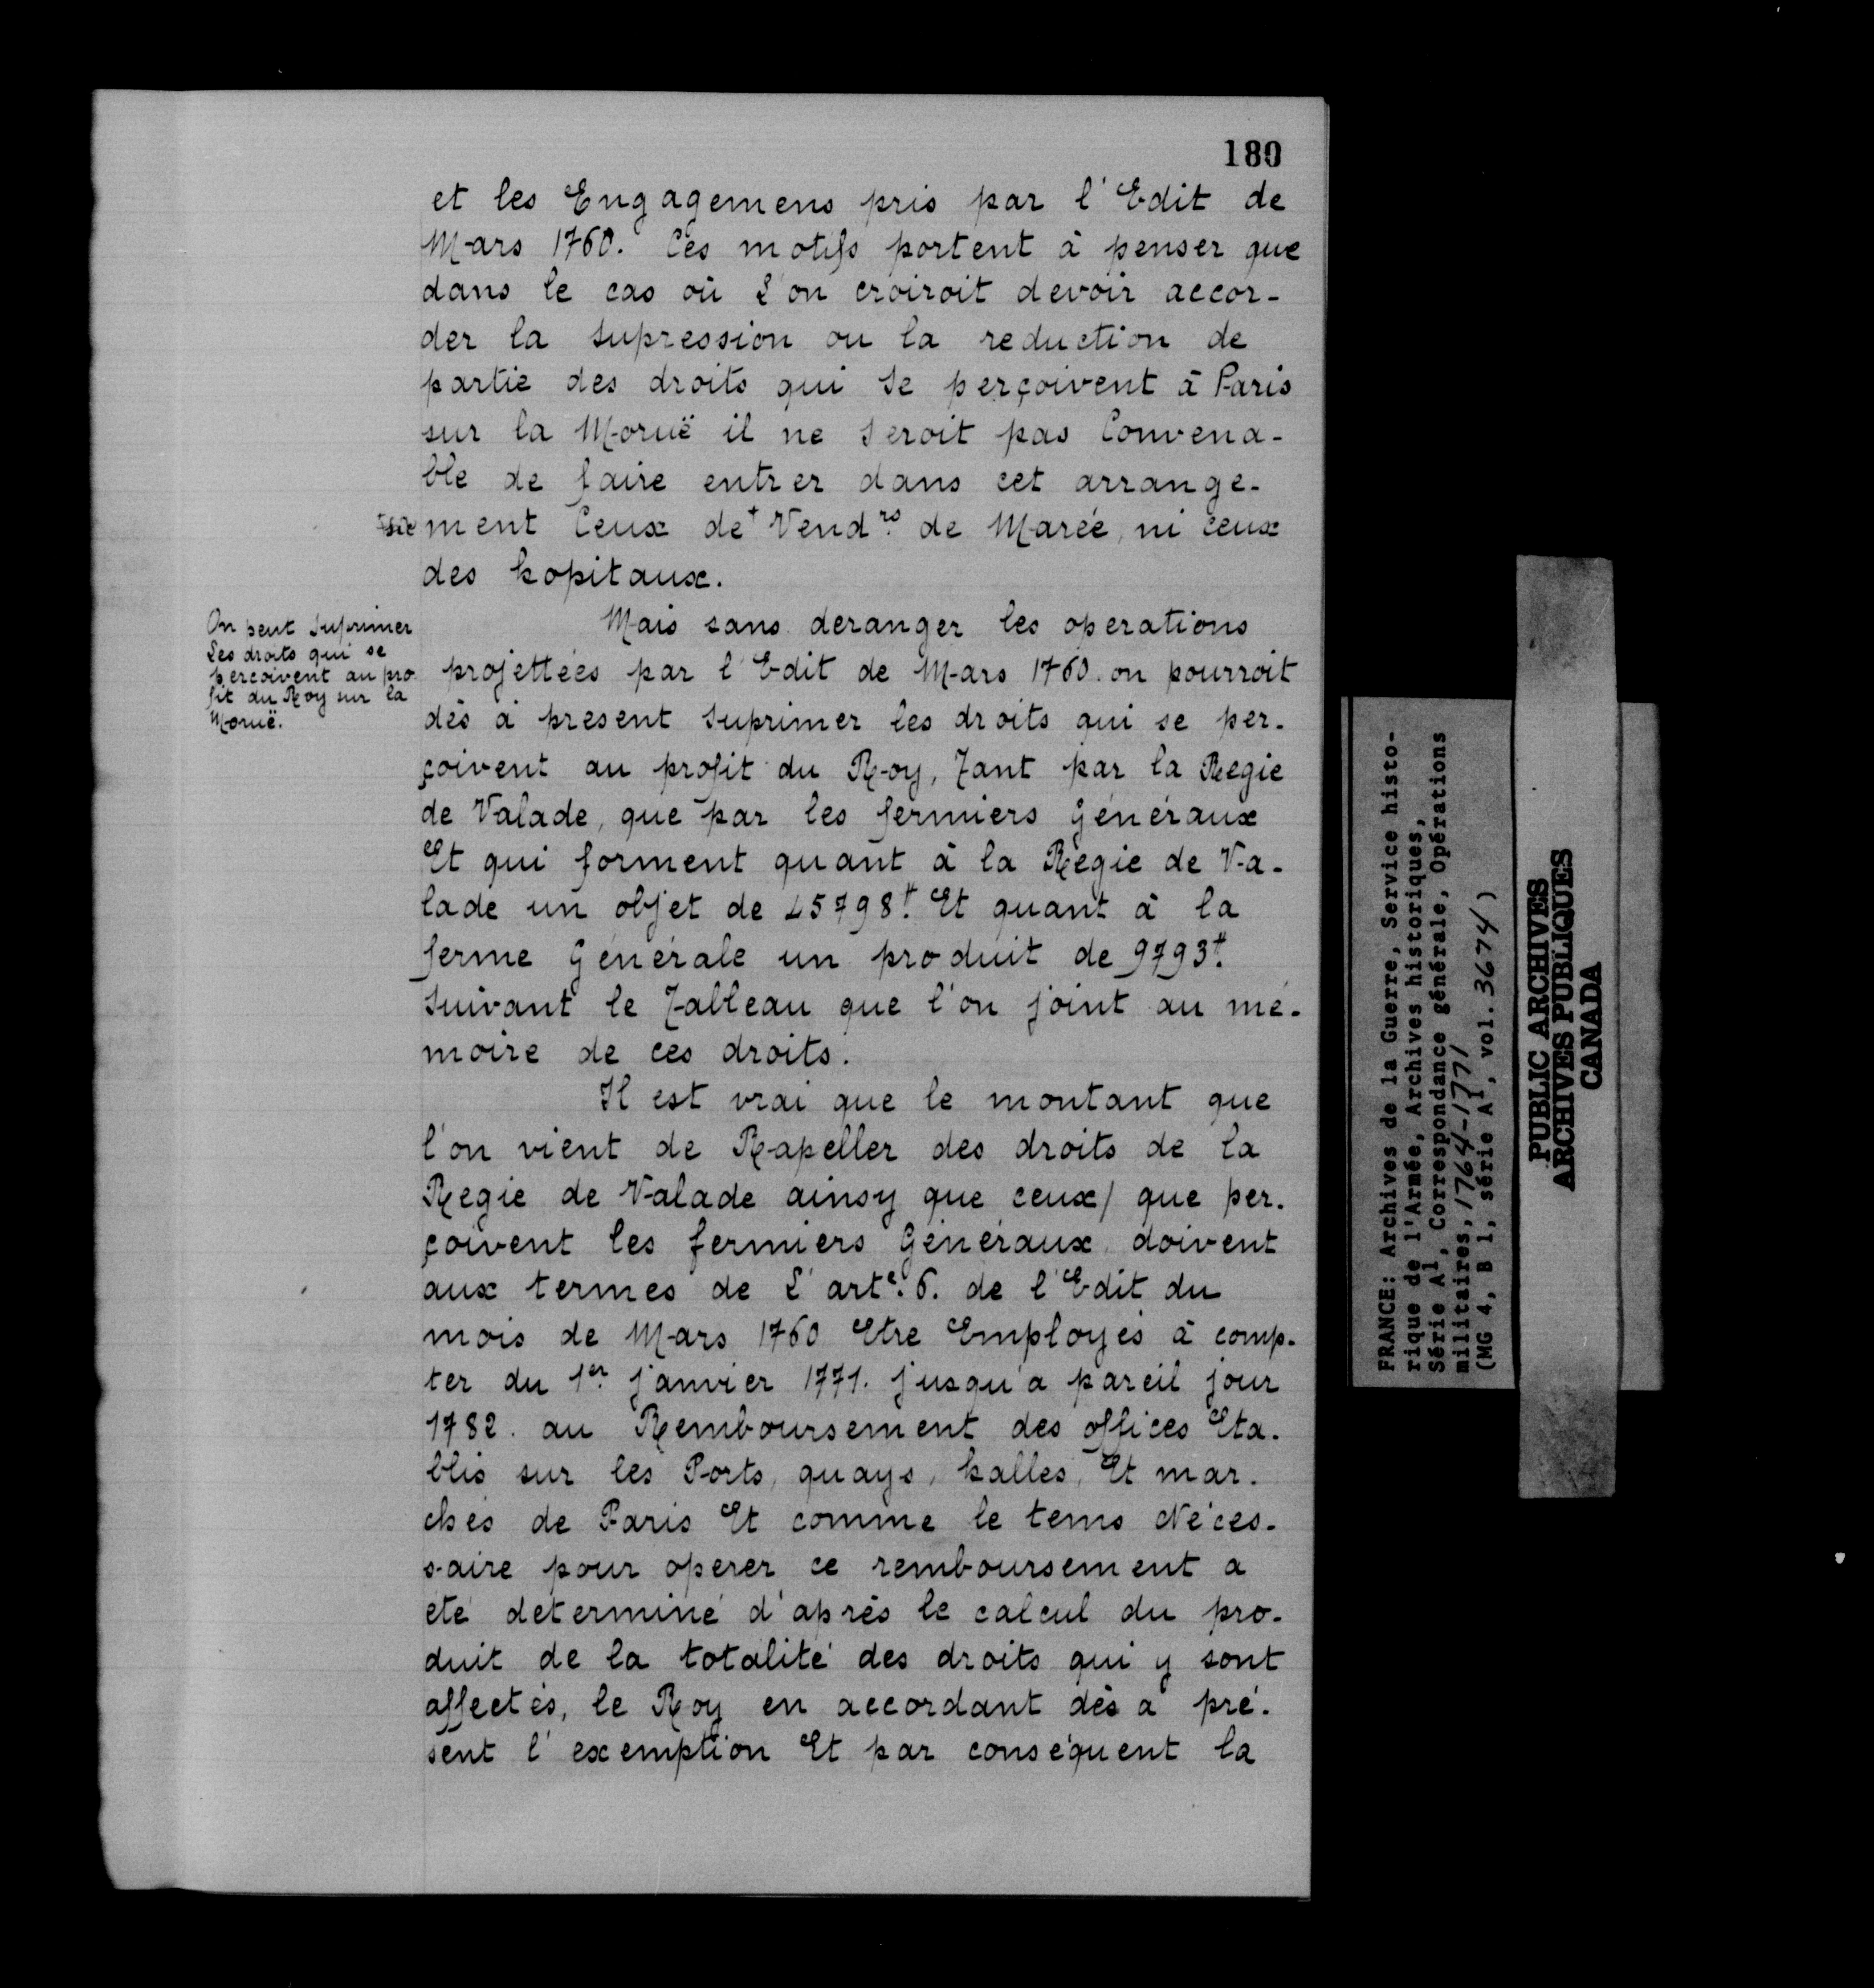 180
et les Engagemens pris par l'Edit de
Mars 1760. Ces motifs portent à penser que
dans le cas où L'on croiroit devoir accor-
der la supression ou la reduction de
partie des droits qui se perçoivent à Paris
sur la Moruë il ne seroit pas Convena-
ble de faire entrer dans cet arrange-
+sic ment Ceux de+ Vendrs. de Marée, ni ceux
des hopitaux.
On peut suprimer
Les droits qui se
percoivent au pro
fit du Roy sur la
Moruë.
Mais sans deranger les operations
projettées par l'Edit de Mars 1760. on pourroit
dès à present suprimer les droits qui se per-
çoivent au profit du Roy, Tant par la Regie
de Valade, que par les fermiers Généraux
Et qui forment quant à la Régie de Va-
lade un objet de 45798tt. Et quant à la
ferme Générale un produit de 9793tt.
suivant le Tableau que l'on joint au mé-
moire de ces droits.
Il est vrai que le montant que
l'on vient de Rapeller des droits de la
Regie de Valade ainsy que ceux/ que per-
çoivent les fermiers Généraux doivent
aux termes de L'arte. 6. de l'Edit du
mois de Mars 1760 Etre Employés à comp-
ter du 1er. janvier 1771. jusqu'a pareil jour
1782. au Remboursement des offices Eta-
blis sur les Ports, quays, halles, Et mar-
chés de Paris Et comme le tems Néces-
saire pour operer ce remboursement a
eté déterminé d'après le calcul du pro-
duit de la totalité des droits qui y sont
affectés, le Roy en accordant dès a pré-
sent l'exemption Et par conséquent la
FRANCE: Archives de la Guerre, Service histo-
rique de l'Armée, Archives historiques,
Série A1, Correspondance générale, Opérations
militaires, 1764-1771
(MG 4, B 1, série A1, vol. 3674)
PUBLIC ARCHIVES
ARCHIVES PUBLIQUES
CANADA